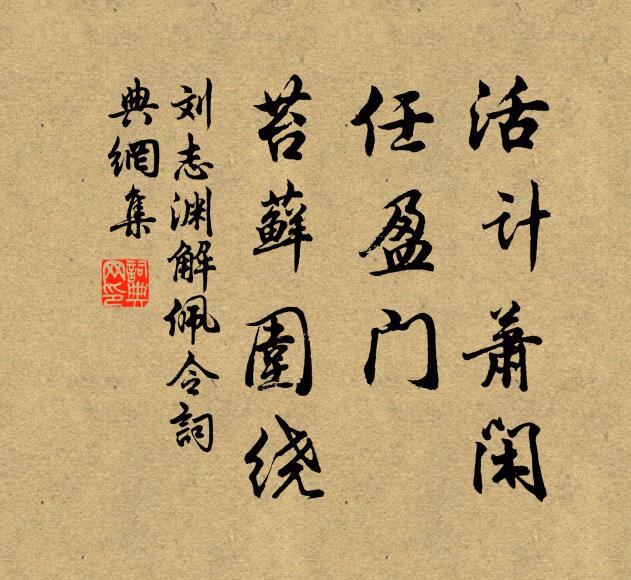 活计萧闲
任盈门
苔藓围绕
刘志渊解佩令詞
典網集
詞典网印